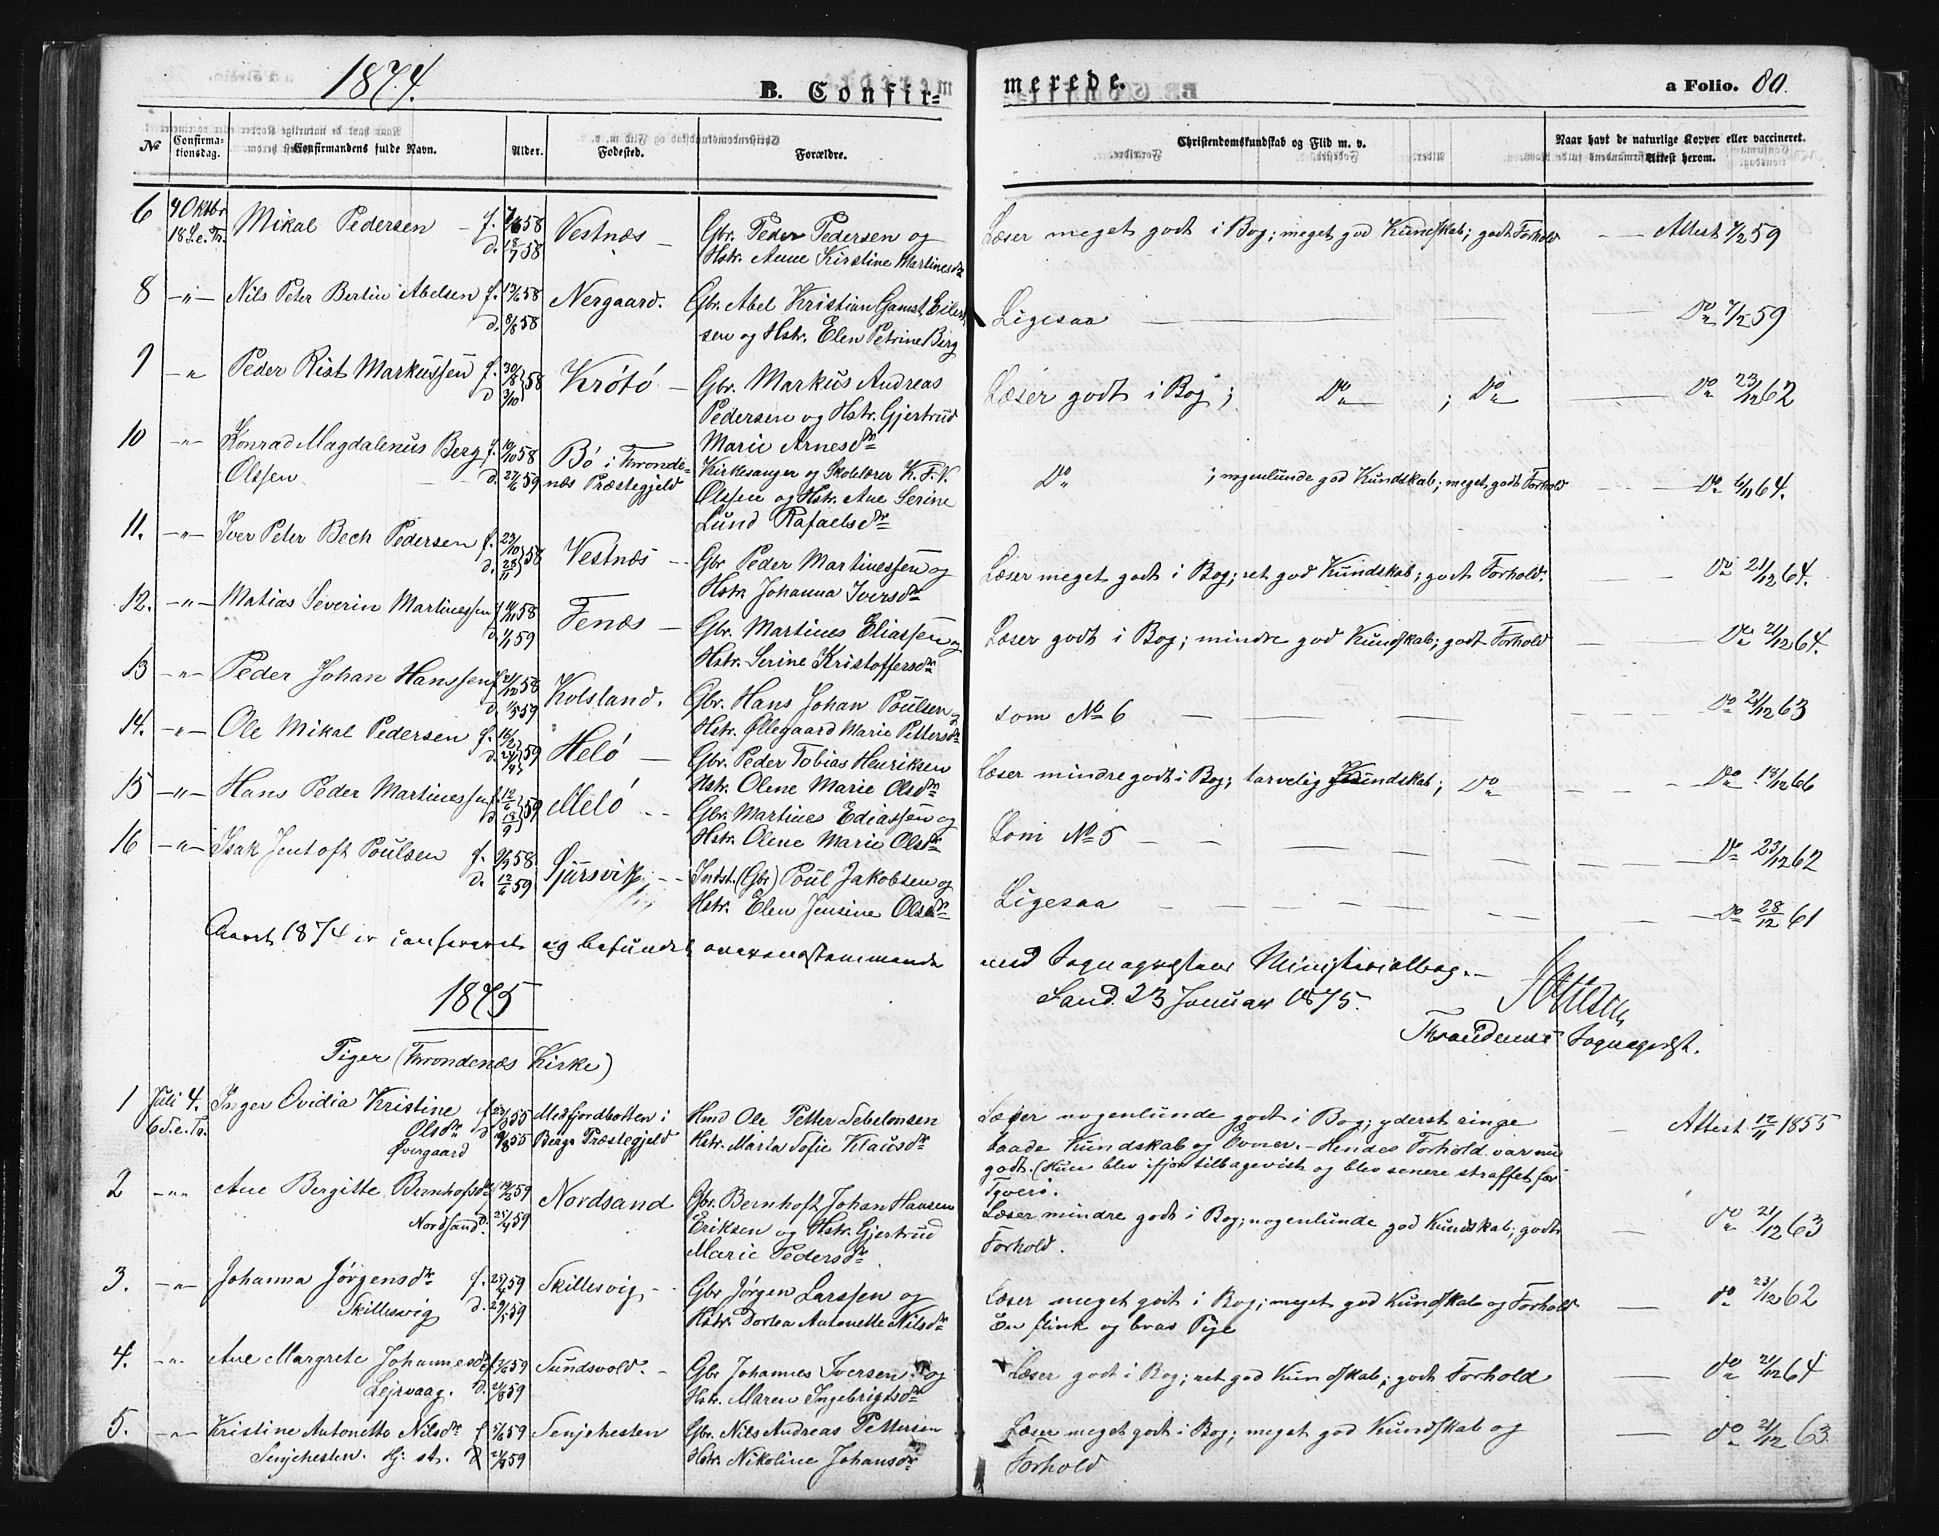 1874.
B. Confir-
merede.
a Folio. 80.
No
Confirma-
tionsdag.
Confirmandens fulde Navn.
Alder.
Fødested.
Forældre.
Christendomskundskab og Flid m. v.
Naar havt de naturlige Kopper eller vaccineret.
Attest herom.
6 4 Oktbr 18 S.e.Tr. Mikal Pedersen f. 58 Vestnæs Gbr. Peder Pedersen og Læser meget godt i Bog; meget god Kundskab; godt Forhold Attest 7/2 59
d. 18/7 58 Hstr. Anne Kirstine Martinesdtr
8 -"- Nils Peter Bertin Abelsen f. 58 Nergaard. Gbr. Abel Kristian Gamst Eilert Ligesaa Do 7/2 59
d. 8/8 58 sen og Hstr. Elen Petrine Berg
9 -"- Peder Rist Markussen f. 30/8 58 Krøtø Gbr. Markus Andreas Læser godt i Bog; Do ; Do Do 23/12 62
d. 3/10 Pedersen og Hstr. Gjertrud
Marie Arnesdtr
10 -"- Konrad Magdalenus Berg f. 19/10 58 Bø i Thronde- Kirkesanger og Skolelærer K. F. V. Do ; nogenlunde god Kundskab; meget godt Forhold Do 64.
Olssen d. 27/6 59 næs Præstegjeld Olssen og Hstr. Ane Serine
Lund Rafaelsdtr
11. -"- Iver Peter Bech Pedersen f. 23/10 58 Vestnæs Gbr Peder Martinessen og Læser meget godt i Bog; ret god Kundskab; godt Forhold. Do 21/12 64.
d. 28/11 Hstr. Johanna Iversdtr
12. -"- Matias Severin Martinessen f. 58 Fenæs Gbr. Martines Eliassen og Læser godt i Bog; mindre god Kundskab; godt Forhold Do 21/12 64.
d. 1/1 59 Hstr. Serine Kristoffersdtr
13 -"- Peder Johan Hanssen f. 21/12 58 Kolsland. Gbr. Hans Johan Poulsen og som No 6 Do 21/12 63
d. 1/5 59 Hstr. Øllegaard Marie Pettersdtr
14. -"- Ole Mikal Pedersen f. 16/2 59 Helø Gbr. Peder Tobias Henriksen Læser mindre godt i Bog; tarvelig Kundskab; Do Do 18/12 66
d. 24/4 Hstr. Olene Marie Olsdtr
15 -"- Hans Peder Martinessen f. 12/6 59 Melø Gbr. Martines Ediassen og Som No 5 Do 23/12 62
d. 13/9 Hstr. Olene Marie Olsdtr
16 -"- Isak Jentoft Poulsen f. 9/9 58. Sjursvik Indst. (Gbr) Poul Jakobsen og Ligesaa Do 28/12 61
d. 12/6 59 Hstr. Elen Jensine Olsdtr
Aaret 1874 er confereret og befundet overensstemmende med Sogneprestens Ministerialbog.
Sand 23 Januar 1875.
Throndenæs Sogneprest.
1875
Piger (Throndenæs Kirke)
1 Juli 4. 6 S.e.Tr. Inger Ovidia Kristine f. 55 Medfjordbotten i Hmd Ole Petter Sebelonsen Læser nogenlunde godt i Bog; yderst ringe Attest 12/11 1855
Olsdtr d. 55 Bergs Præstegjeld Hstr. Marta Sofie Klausdtr baade Kundskab og Evner. Hendes Forhold var nu
Øvergaard godt. (Hun blev ifjor tilbagevist og blev senere straffet for
Tyveri.
2 -"- Ane Bergitte Bernhofsdtr 59 Nordsand Gbr. Bernhoft Johan Hansen Læser mindre godt i Bog; nogenlunde god Kundskab; godt Do 21/12 63
Nordsand. d. 25/4 59 Eriksen og Hstr. Gjertrud Forhold.
Marie Pedersdtr
3. -"- Johanna Jørgensdtr f. 25/4 59 Skillesvig Gbr Jørgen Larssen og Læser meget godt i Bog; meget god Kundskab og Forhold Do 23/12 62
Skillesvig d. 29/5 59 Hstr. Dortea Antonette Nilsdtr En flink og brav Pige
4. -"- Ane Margrete Johannesdtr f. 59 Sundsvold. Gbr Johannes Iversen og Læser godt i Bog; ret god Kundskab; godt Forhold Do 21/12 64
Leirvaag. d. 21/8 59 Hstr. Maren Ingebrigtsdtr
5. -"- Kristine Antonette Nilsdtr f 5/6 59 Senjehesten Gbr. Nils Andreas Pettersen Læser meget godt i Bog; meget god Kundskab og Do 21/12 63
Senjehesten. d 59 Hstr. Nikoline Johansdtr Forhold